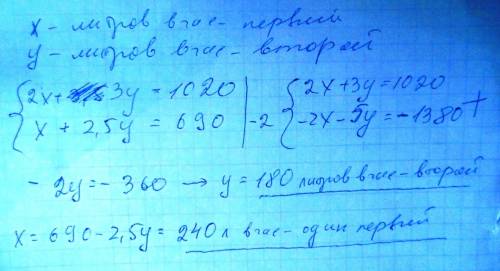 x - литров в час - первый
y - литров в час - второй
{2x+3y = 1020 {2x+3y=1020
{x + 2,5y = 690 | -2 {-2x-5y=-1380 +
- 2y = - 360 → y = 180 литров в час - второй
x = 690 - 2,5y = 240 л в час - один первый